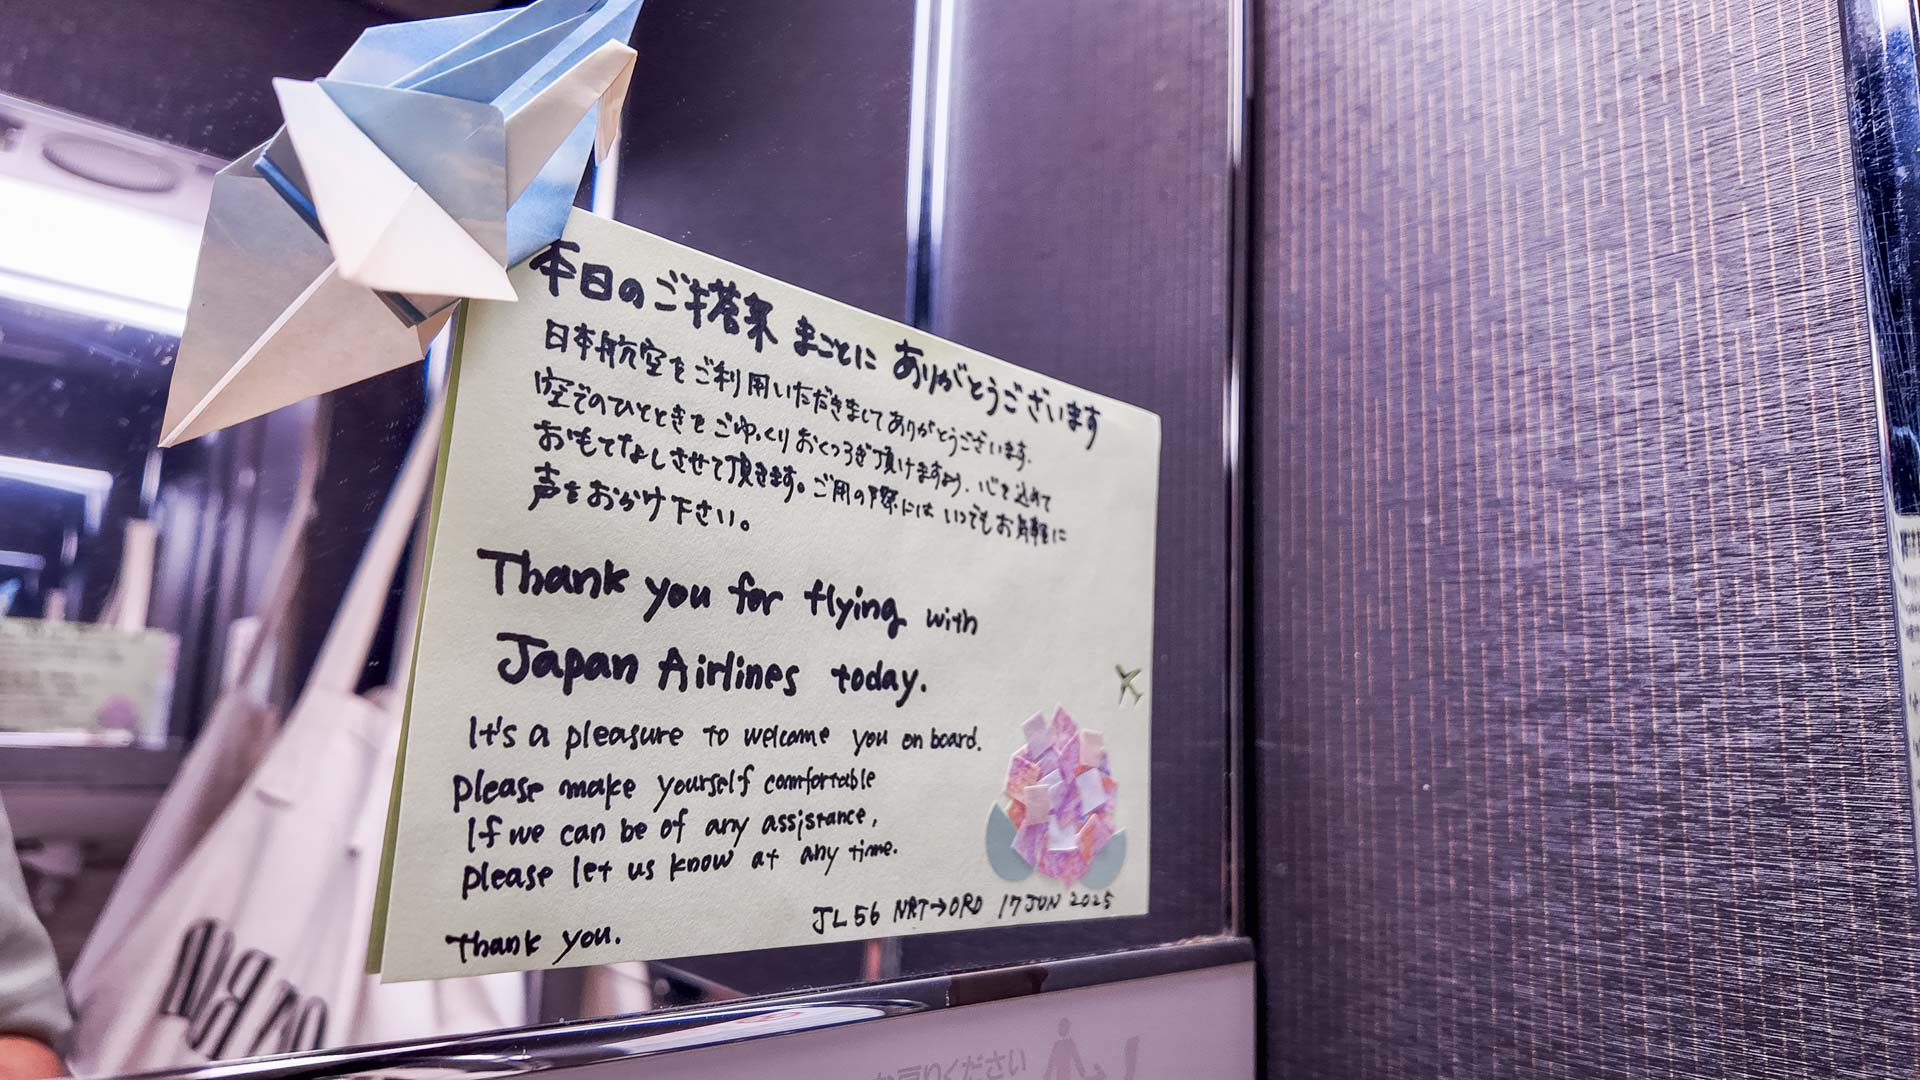 本日のご搭乗 まことに ありがとうございます
日本航空をご利用いただきましてありがとうございます.
空でのひとときをごゆっくりおくつろぎ頂けますよう、心を込めて
おもてなしさせて頂きます。ご用の際にはいつでもお気軽に
声をおかけ下さい。
Thank you for flying with
Japan Airlines today.
It's a pleasure to welcome you on board.
Please make yourself comfortable
If we can be of any assistance,
please let us know at any time.
Thank you.
JL56 NRT→ORD 17JUN 2025
ください